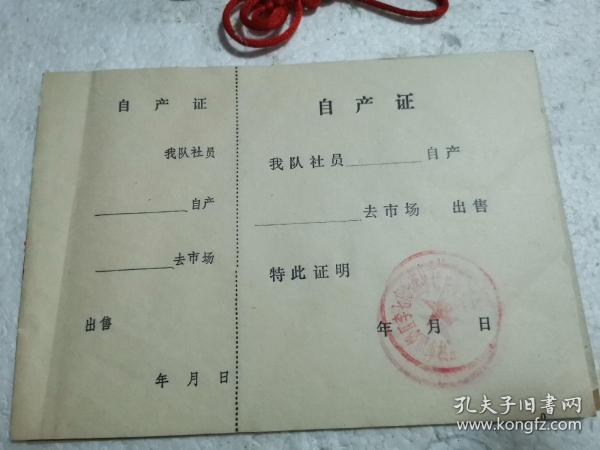 自产证
我队社员
________自产
________去市场
出售
年月日
自产证
我队社员________自产
________去市场 出售
特此证明
年月日
孔夫子旧书网
www.kongfz.com